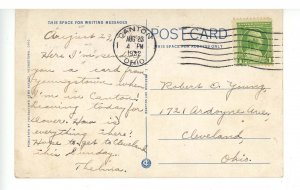 THIS SPACE FOR WRITING MESSAGES
POST CARD
THIS SPACE FOR ADDRESS ONLY
CANTON
AUG 23
4 PM
1932
OHIO
August 23,
Here I'm
you a card from
Youngstown when
I'm in Canton!
Leaving today for
How is
everything there?
Hope to get to Cleveland
this Sunday.
Thelma.
Robert C. Young
1721 Ardoyne Ave.
Cleveland,
Ohio.